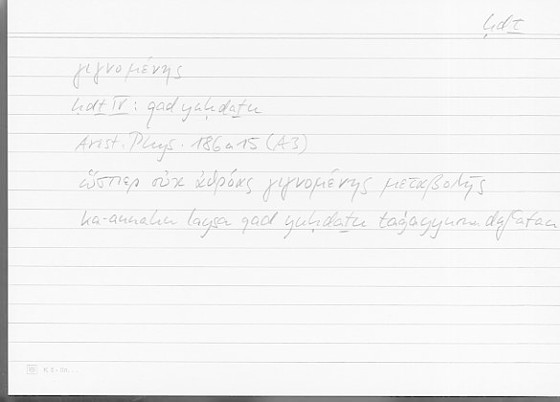 ḥdṯ
γιγνομένης
ḥdṯ IV: qad yuḥdaṯu
Arist. Phys. 186a15 (A3)
ὥσπερ οὐκ ἀθρόας γιγνομένης μεταβολῆς
ka-annahu laysa qad yuḥdaṯu taġayyurun dafʿatan